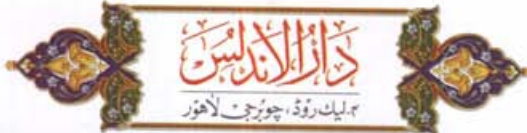 دَارُالاَندلُسْ
۴-لیک روڈ، چوبُرجی لاہور